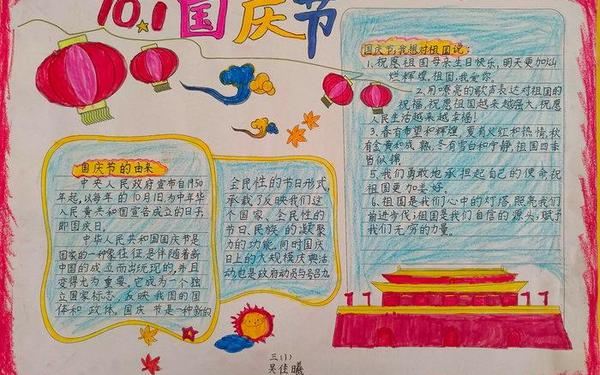 10.1国庆节
国庆节的由来
中央人民政府宣布自1950
年起,以每年的10月1日为中华
人民共和国宣告成立的日子,
即国庆日。
中华人民共和国国庆节是
国家的一种象征是伴随着新
中国的成立而出现的,并且
变得尤为重要。它成为一个独
立国家标志,反映我国的国
体和政体。国庆节是一种新的
全民性的节日形式,
承载了反映我们这
个国家、全民性的
节日、民族的凝聚
力的功能,同时国庆
日上的大规模庆典活
动也是政府动员与号召力
国庆节,我想对祖国说:
1.祝愿祖国母亲生日快乐,明天更加灿
烂辉煌,祖国,我爱你。
2.用嘹亮的歌声表达对祖国的
祝福,祝愿祖国越来越强大,祝愿
人民生活越来越幸福!
3.春有希望和辉煌,夏有火红和热情,秋
有金黄和成熟,冬有雪白和宁静,祖国四季
如锦
5.我们勇敢地承担起自己的使命祝
祖国更加美好。
6.祖国是我们心中的灯塔,照亮我们
前进步伐;祖国是我们自信的源头,赋予
我们无穷的力量。
三(1)
吴佳曦